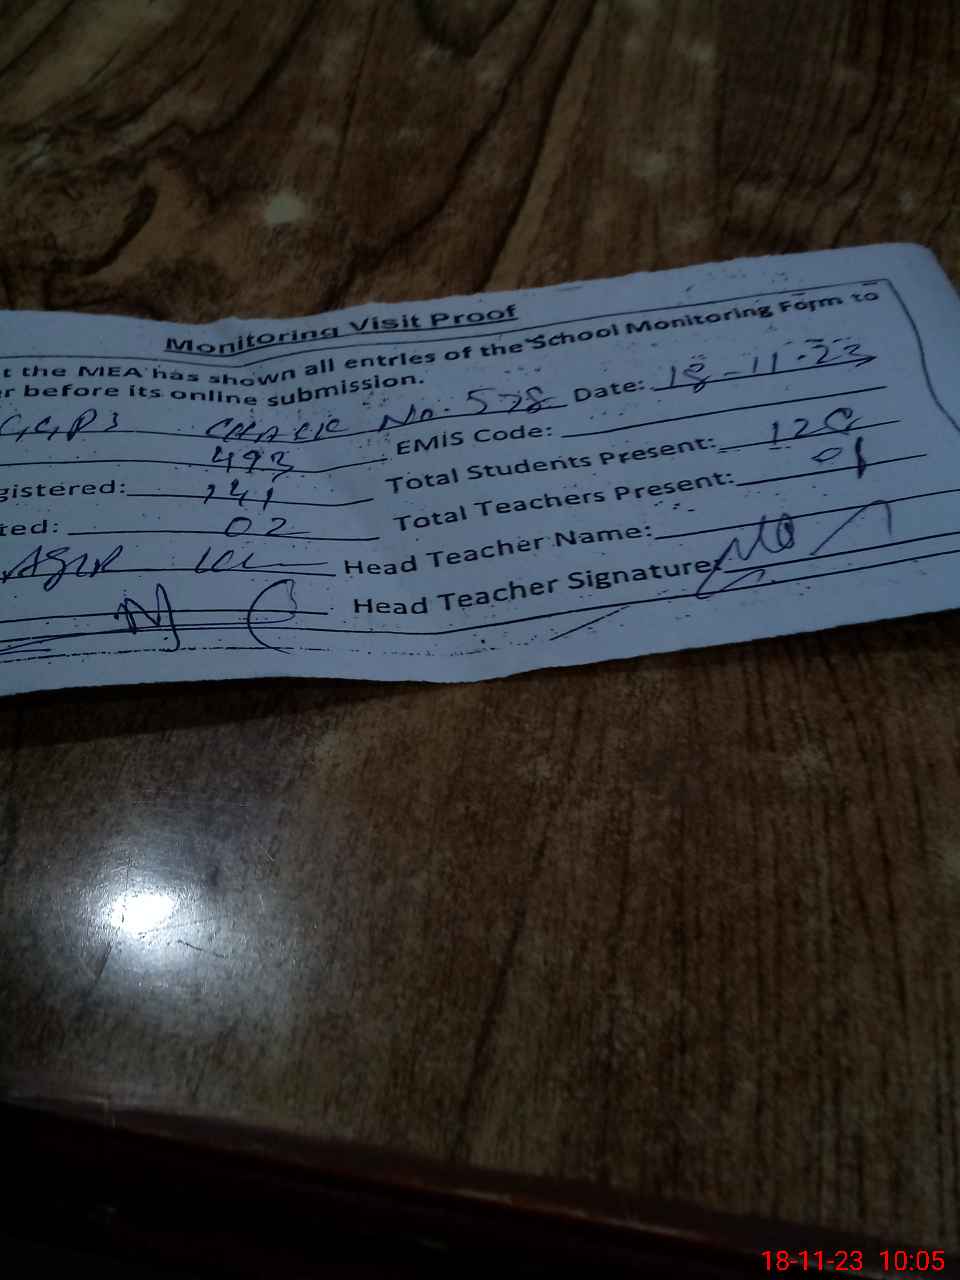 Monitoring Visit Proof
t the MEA has shown all entries of the School Monitoring Form to
er before its online submission.
No. 578 Date: 18-11-23
493 EMIS Code:
gistered: 141 Total Students Present:
ted: 02 Total Teachers Present: 01
Head Teacher Name:
Head Teacher Signature:
18-11-23 10:05